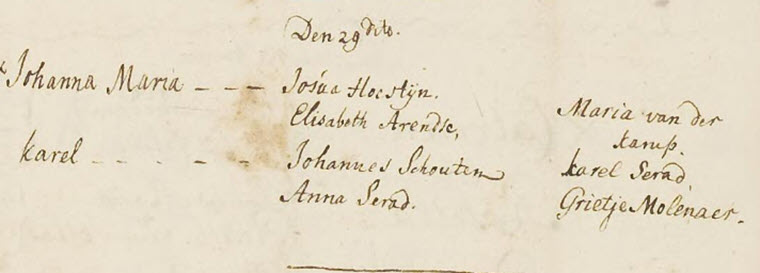 Den 29 dito.
x Johanna Maria - - - Josua Hoestyn.
Elisabeth Arendse,
Maria van der
karup.
karel - - - - - Johannes Schouten
karel Serad
Anna Serad.
Grietje Molenaer.